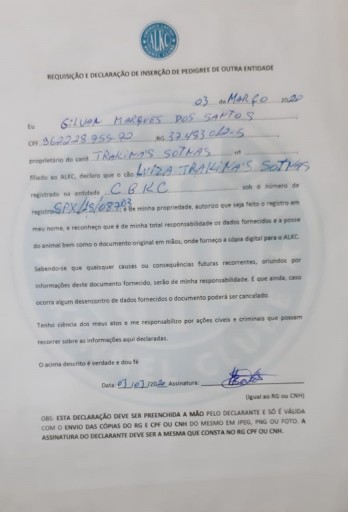 ALKC
REQUISIÇÃO E DECLARAÇÃO DE INSERÇÃO DE PEDIGREE DE OUTRA ENTIDADE
03 de MARÇO 2020
Eu GILVAN MARQUES DOS SANTOS
CPF RG
proprietário do canil TRAKINA'S SOTNAS nº
filiado ao ALKC, declaro que o cão LUIZA TRAKINA'S SOTNAS
registrado na entidade C B K C sob o número de
registro é de minha propriedade, autorizo que seja feito o registro em
meu nome, e reconheço que é de minha total responsabilidade os dados fornecidos e a posse
do animal bem como o documento original em mãos, onde forneço a cópia digital para o ALKC.
Sabendo-se que quaisquer causas ou consequências futuras recorrentes, oriundos por
informações deste documento fornecido, serão de minha responsabilidade. E que ainda, caso
ocorra algum desencontro de dados fornecidos o documento poderá ser cancelado.
Tenho ciência dos meus atos e me responsabilizo por ações cíveis e criminais que possam
recorrer sobre as informações aqui declaradas.
O acima descrito é verdade e dou fé
Data: 03/03/2020 Assinatura:
(Igual ao RG ou CNH)
OBS: ESTA DECLARAÇÃO DEVE SER PREENCHIDA A MÃO PELO DECLARANTE E SÓ É VÁLIDA
COM O ENVIO DAS CÓPIAS DO RG E CPF OU CNH DO MESMO EM JPEG, PNG OU FOTO. A
ASSINATURA DO DECLARANTE DEVE SER A MESMA QUE CONSTA NO RG CPF OU CNH.